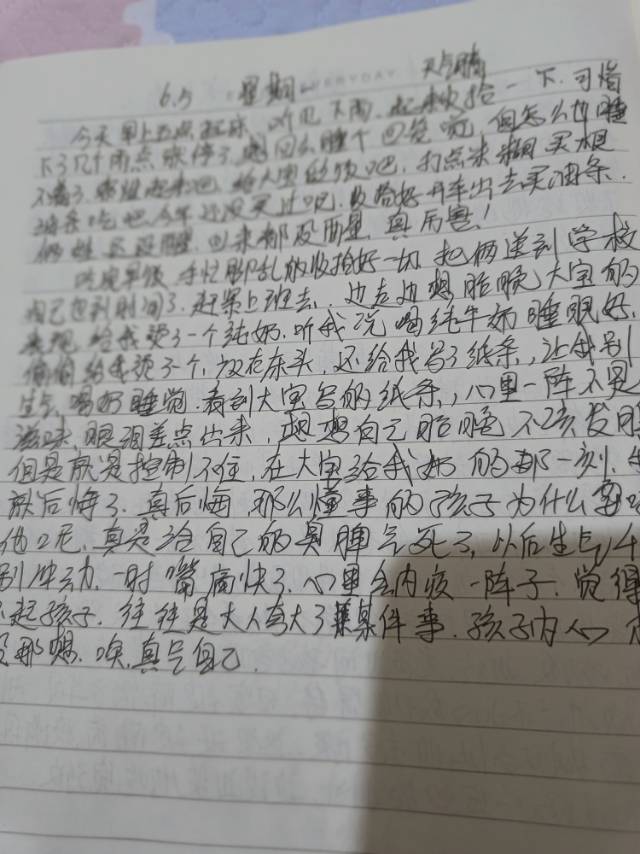 6.5 星期 EVERYDAY 天气晴
今天早上五点起床,听见下雨,起来收拾一下.可惜
下了几个雨点就停了,想回去睡个回笼觉,但怎么也睡
不着了.起来吧,给大宝做饭吧,打点米糊,买根
油条吃吧,今年还没买过吧.收拾好开车出去买油条.
俩娃还没醒.回来都没质量,真厉害!
吃完早饭,手忙脚乱的收拾好一切,把俩送到学校
自己也到时间了,赶紧上班去,边走边想昨晚大宝的
表现,给我烫了一个纯奶,听我说喝纯牛奶睡眠好,
偷偷给我烫了一个,放在床头,还给我写了纸条,让我别
生气,喝奶睡觉.看到大宝写的纸条,心里一阵不是
滋味,眼泪差点出来,想想自己昨晚不该发脾
但是就是控制不住,在大宝给我奶的那一刻,
就后悔了.真后悔,那么懂事的孩子为什么要
他呢,真是给自己的臭脾气死了,以后生气
别冲动,一时嘴痛快了,心里会内疚一阵子.觉得
起孩子.往往是大人夸大了某件事.孩子内心
那想.唉,真气自己.